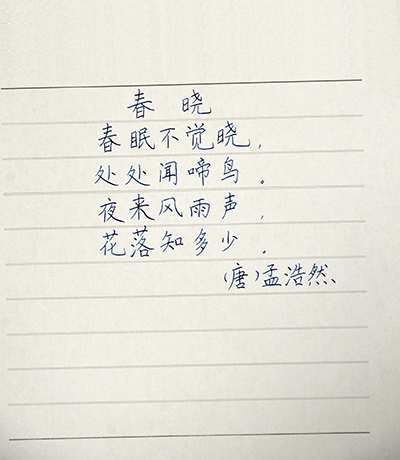 春 晓
春眠不觉晓，
处处闻啼鸟。
夜来风雨声，
花落知多少．
（唐）孟浩然、